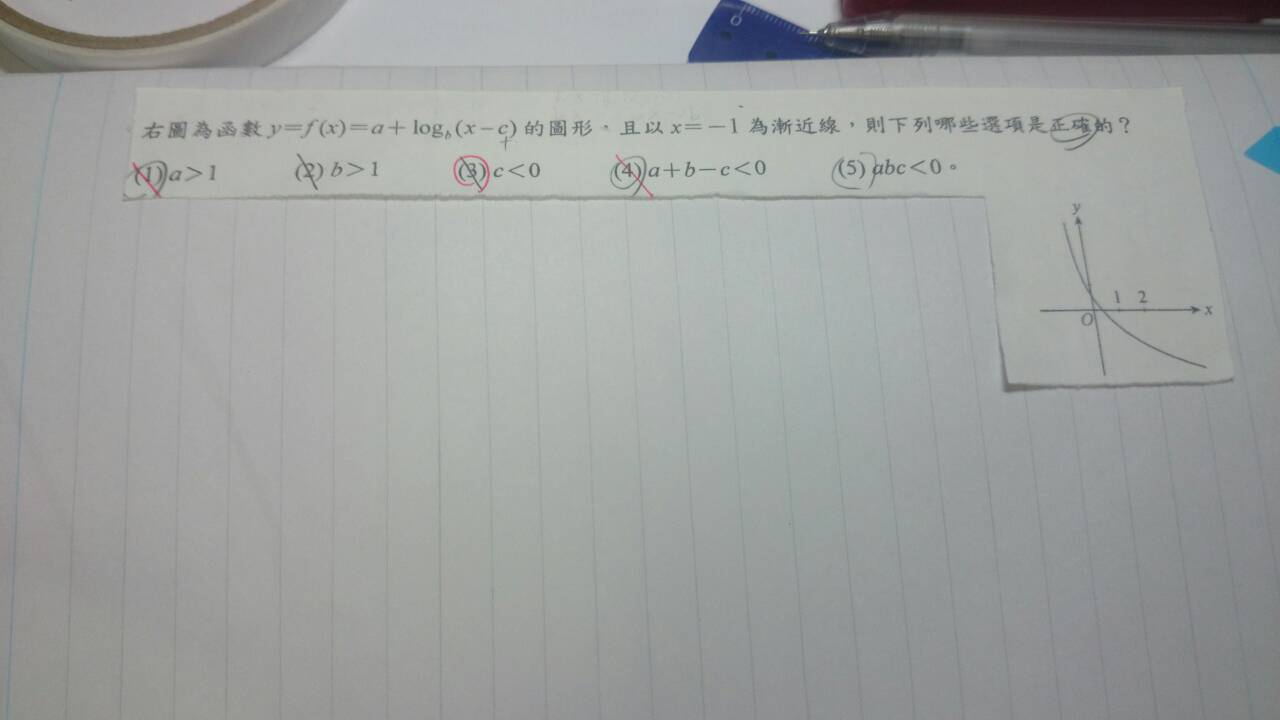 右圖為函數 y=f(x)=a+log_b(x-c) 的圖形，且以 x=-1 為漸近線，則下列哪些選項是正確的？
(1) a>1 (2) b>1 (3) c<0 (4) a+b-c<0 (5) abc<0。
+
y
1 2
O x
0